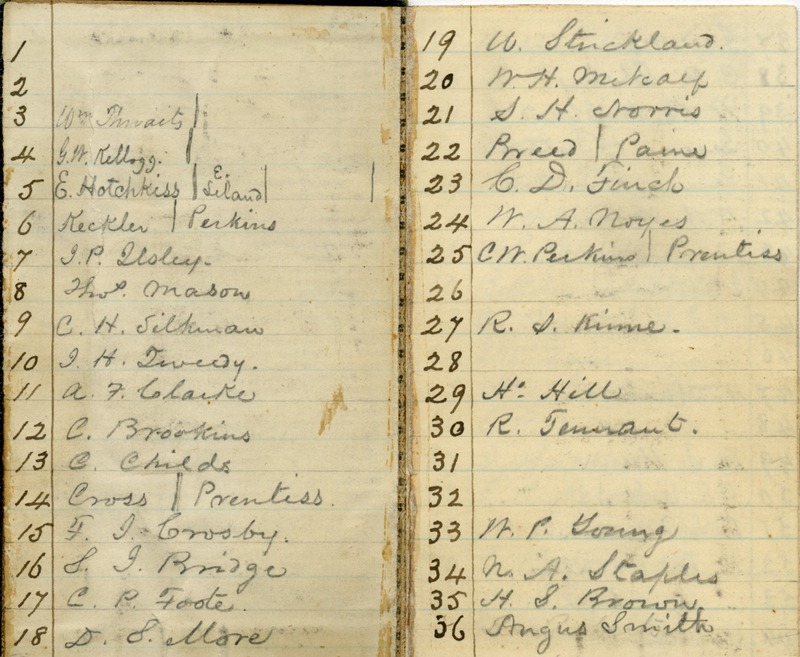 1
2
3 Wm Thwaits |
4 G.W. Kellogg. |
5 E. Hotchkiss | E. Leland | |
6 Keckler | Perkins
7 I.P. Ilsley.
8 Thos. Mason
9 C. H. Silkman
10 J. H. Tweedy.
11 A. F. Clarke
12 C. Brookins
13 C. Childs
14 Cross | Prentiss.
15 F. J. Crosby.
16 S. J. Bridge
17 C. P. Foote.
18 D. S. More
19 W. Strickland.
20 W. H. Metcalf
21 S. H. Norris
22 Breed | Paine
23 C. D. Finch
24 W. A. Noyes
25 C W. Perkins | Prentiss
26
27 R. S. Kinne.
28
29 Hs. Hill
30 R. Tennant.
31
32
33 W. P. Young
34 N. A. Staples
35 H. S. Brown
36 Angus Smith